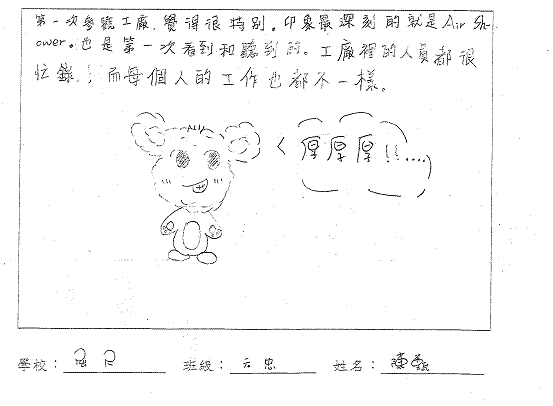 第一次參觀工廠,覺得很特別。印象最深刻的就是Air Sh-
ower。也是第一次看到和聽到的。工廠裡的人員都很
忙錄,;而每個人的工作也都不一樣。
<厚厚厚!!....
學校:
班級:六忠
姓名:陳